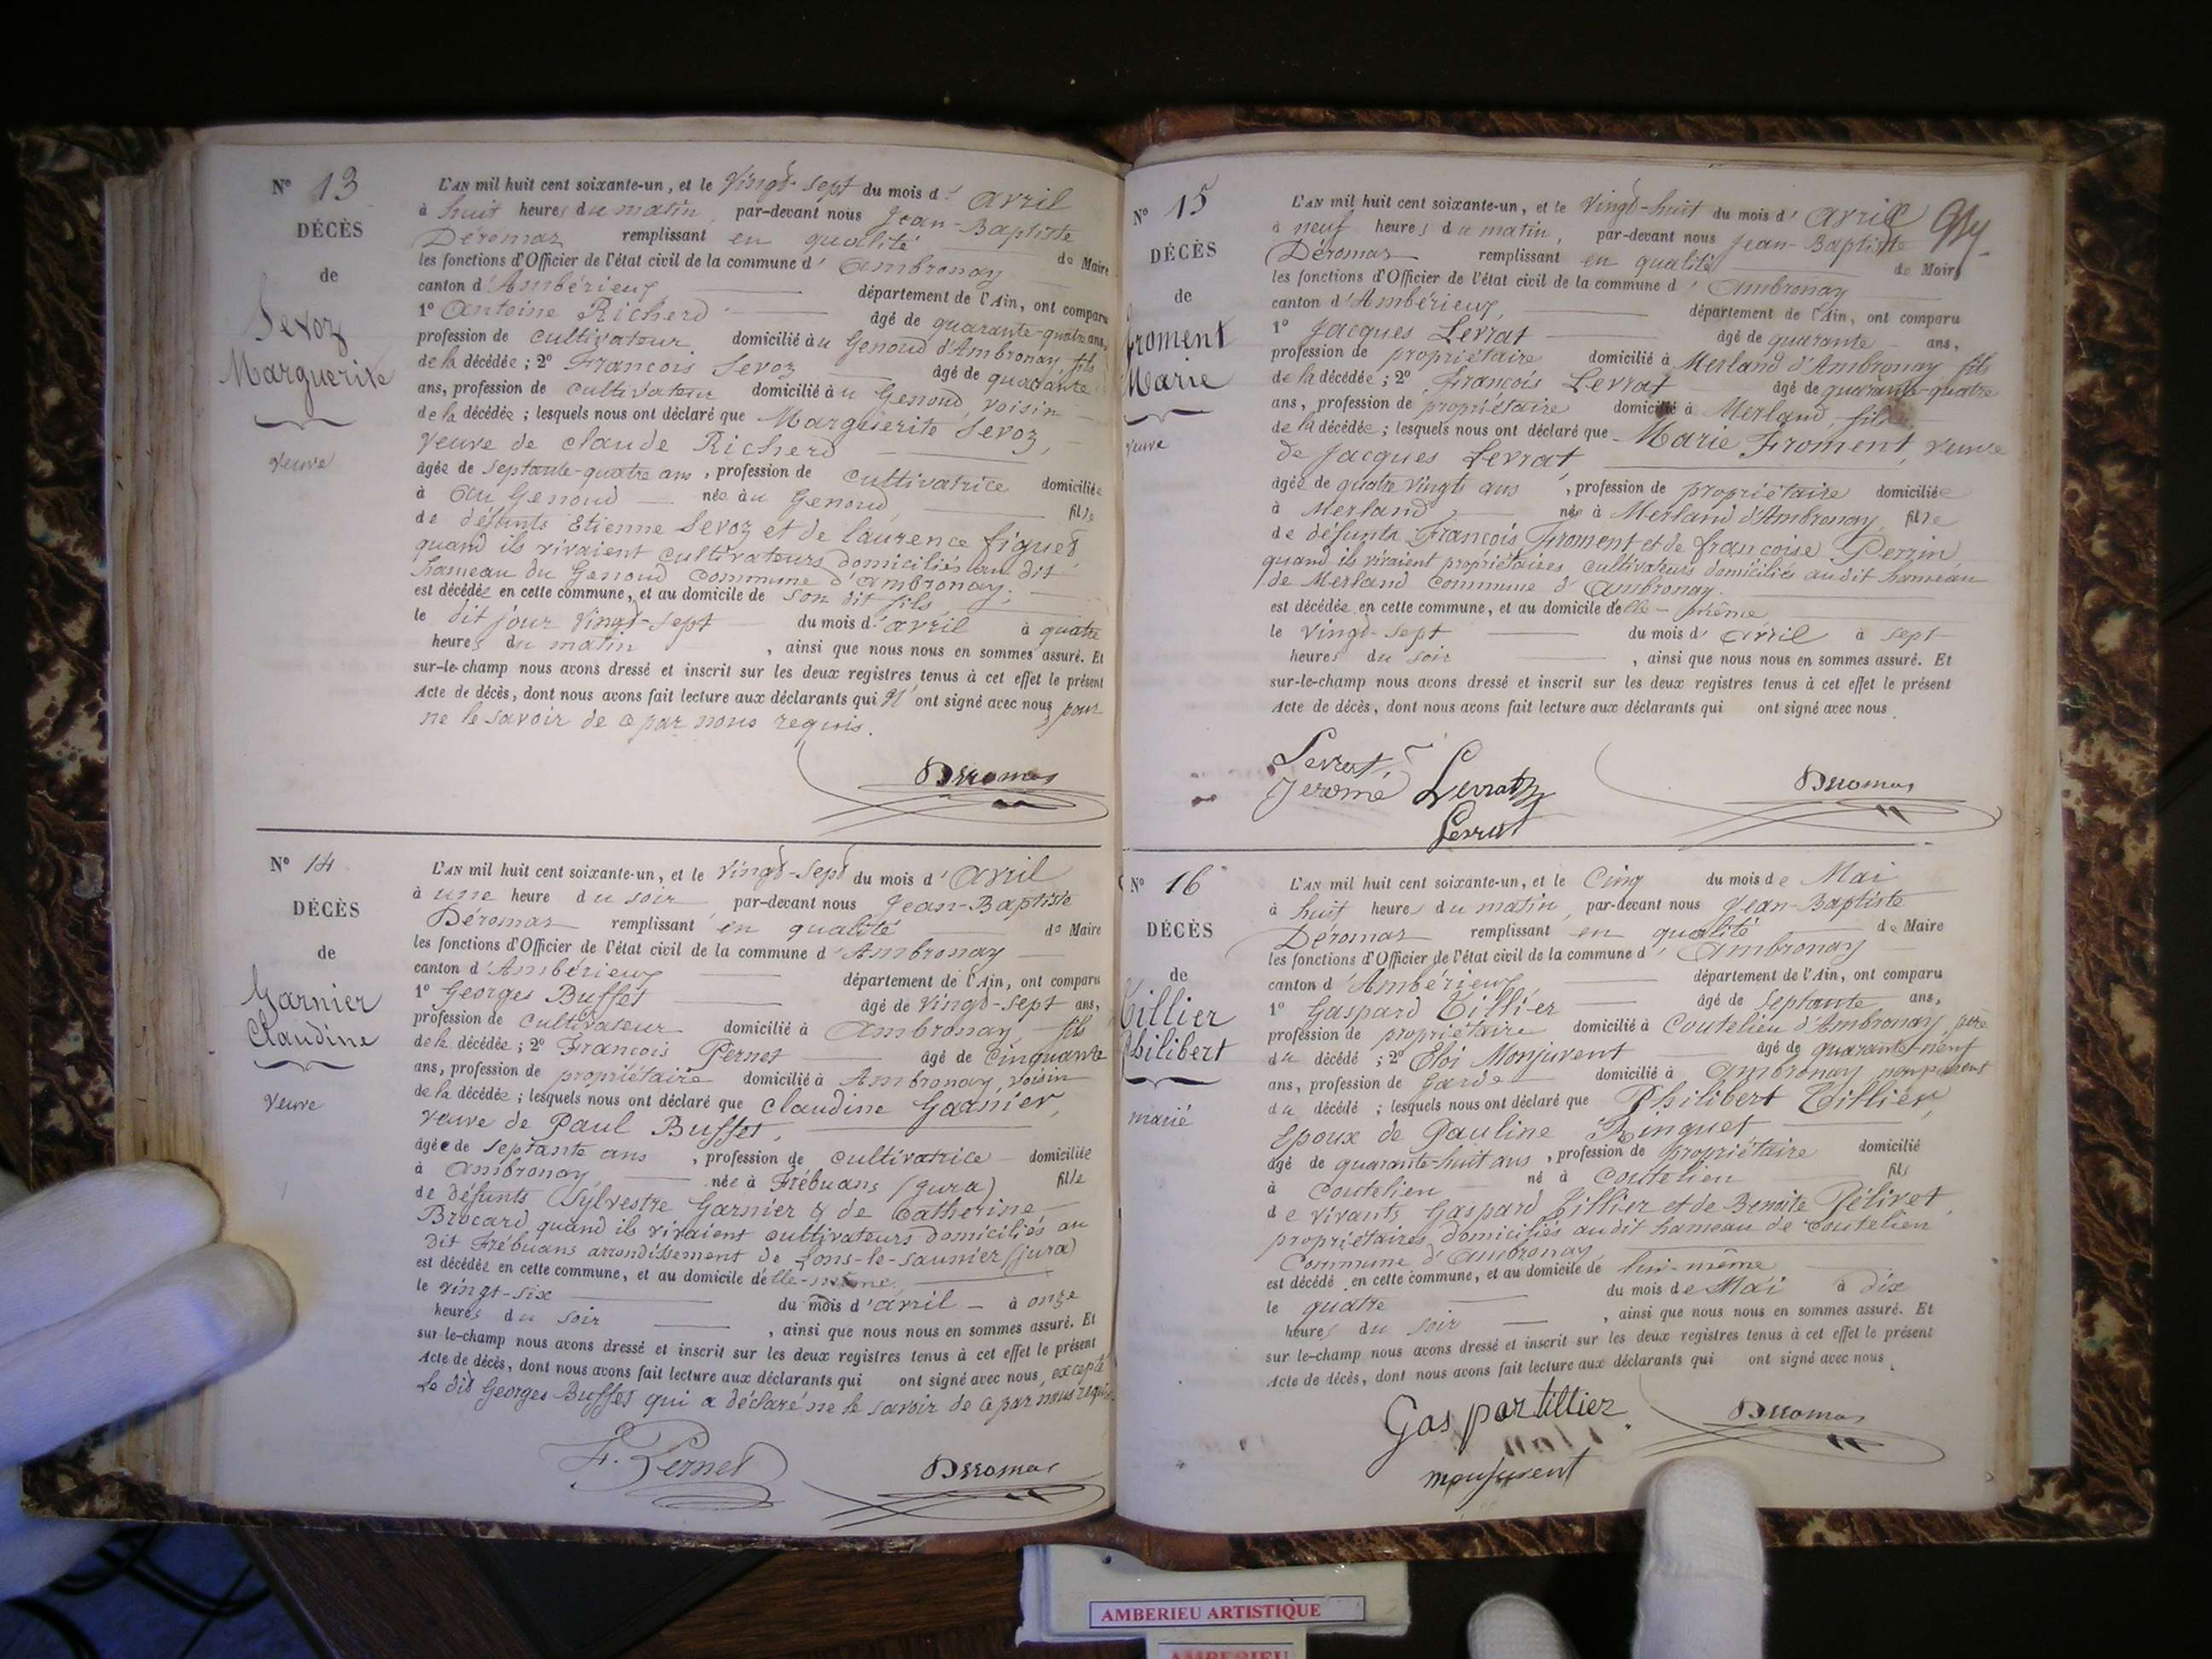 N° 13
DÉCÈS
de
Sevoz
Marguerite
veuve
L'AN mil huit cent soixante-un, et le vingt-sept du mois d'avril
à huit heures du matin, par-devant nous Jean-Baptiste
Déromas remplissant en qualité de Maire
les fonctions d'Officier de l'état civil de la commune d'Ambronay
canton d'Ambérieux département de l'Ain, ont comparu
1° Antoine Richerd âgé de quarante-quatre ans,
profession de cultivateur domicilié au Genoud d'Ambronay fils
de la décédée ; 2° François Sevoz âgé de quarante
ans, profession de cultivateur domicilié au Genoud, voisin
de la décédée ; lesquels nous ont déclaré que Marguerite Sevoz,
veuve de claude Richerd
âgée de septante-quatre ans, profession de cultivatrice domiciliée
à au Genoud née au Genoud, fille
de défunts Etienne Sevoz et de laurence figuet
quand ils vivaient cultivateurs domiciliés au dit
hameau du Genoud commune d'ambronay.
est décédée en cette commune, et au domicile de son dit fils,
le dit jour vingt-sept du mois d'avril à quatre
heures du matin, ainsi que nous nous en sommes assuré. Et
sur-le-champ nous avons dressé et inscrit sur les deux registres tenus à cet effet le présent
Acte de décès, dont nous avons fait lecture aux déclarants qui n'ont signé avec nous pour
ne le savoir de ce par nous requis.
Derromas
N° 14
DÉCÈS
de
Garnier
Claudine
Veuve
L'AN mil huit cent soixante-un, et le vingt-sept du mois d'avril
à une heure du soir, par-devant nous Jean-Baptiste
Déromas remplissant en qualité de Maire
les fonctions d'Officier de l'état civil de la commune d'Ambronay
canton d'Ambérieux département de l'Ain, ont comparu
1° Georges Buffet âgé de vingt-sept ans,
profession de cultivateur domicilié à Ambronay fils
de la décédée ; 2° François Pernet âgé de cinquante
ans, profession de propriétaire domicilié à Ambronay, voisin
de la décédée ; lesquels nous ont déclaré que claudine Garnier,
veuve de Paul Buffet,
âgée de septante ans, profession de cultivatrice domiciliée
à ambronay née à Frébuans (jura) fille
de défunts Sylvestre Garnier & de Catherine
Brocard quand ils vivaient cultivateurs domiciliés au
dit Frébuans arrondissement de Lons-le-saunier (jura)
est décédée en cette commune, et au domicile d'elle-même
le vingt-six du mois d'avril à onze
heures du soir, ainsi que nous nous en sommes assuré. Et
sur-le-champ nous avons dressé et inscrit sur les deux registres tenus à cet effet le présent
Acte de décès, dont nous avons fait lecture aux déclarants qui ont signé avec nous, excepté
le dit Georges Buffet qui a déclaré ne le savoir de ce par nous requis.
F. Pernet
Derromas
N° 15
DÉCÈS
de
froment
Marie
veuve
L'AN mil huit cent soixante-un, et le vingt-huit du mois d'avril
à neuf heures du matin, par-devant nous Jean-Baptiste
Déromas remplissant en qualité de Maire
les fonctions d'Officier de l'état civil de la commune d'Ambronay
canton d'Ambérieux, département de l'Ain, ont comparu
1° Jacques Levrat âgé de quarante ans,
profession de propriétaire domicilié à Merland d'Ambronay fils
de la décédée ; 2° François Levrat âgé de quarante-quatre
ans, profession de propriétaire domicilié à Merland, fils
de la décédée ; lesquels nous ont déclaré que Marie Froment, veuve
de Jacques Levrat,
âgée de quatre vingts ans, profession de propriétaire domiciliée
à Merland, née à Merland d'Ambronay, fille
de défunts François Froment et de françoise Perrin,
quand ils vivaient propriétaires cultivateurs domiciliés au dit hameau
de Merland commune d'ambronay.
est décédée en cette commune, et au domicile d'elle-même
le vingt-sept du mois d'avril à sept
heures du soir, ainsi que nous nous en sommes assuré. Et
sur-le-champ nous avons dressé et inscrit sur les deux registres tenus à cet effet le présent
Acte de décès, dont nous avons fait lecture aux déclarants qui ont signé avec nous.
Levrat,
Jerome Levrat
Levrat
Derromas
N° 16
DÉCÈS
de
Tillier
Philibert
marié
L'AN mil huit cent soixante-un, et le cinq du mois de Mai
à huit heures du matin, par-devant nous Jean-Baptiste
Déromas remplissant en qualité de Maire
les fonctions d'Officier de l'état civil de la commune d'Ambronay
canton d'Ambérieux département de l'Ain, ont comparu
1° Gaspard Tillier âgé de septante ans,
profession de propriétaire domicilié à Coutelieu d'Ambronay, père
du décédé ; 2° Eloi Monjuvent âgé de quarante-neuf
ans, profession de Garde domicilié à Ambronay non parent
du décédé ; lesquels nous ont déclaré que Philibert Tillier,
Epoux de Pauline Ringuet
âgé de quarante-huit ans, profession de propriétaire domicilié
à coutelieu né à coutelieu fils
de vivants Gaspard Tillier et de Benoite Pélivet,
propriétaires domiciliés au dit hameau de coutelieu
Commune d'Ambronay
est décédé en cette commune, et au domicile de lui-même
le quatre du mois de Mai à dix
heures du soir, ainsi que nous nous en sommes assuré. Et
sur le-champ nous avons dressé et inscrit sur les deux registres tenus à cet effet le présent
Acte de décès, dont nous avons fait lecture aux déclarants qui ont signé avec nous.
Gaspar tillier
monjuvent
Derromas
AMBERIEU ARTISTIQUE
AMBERIEU